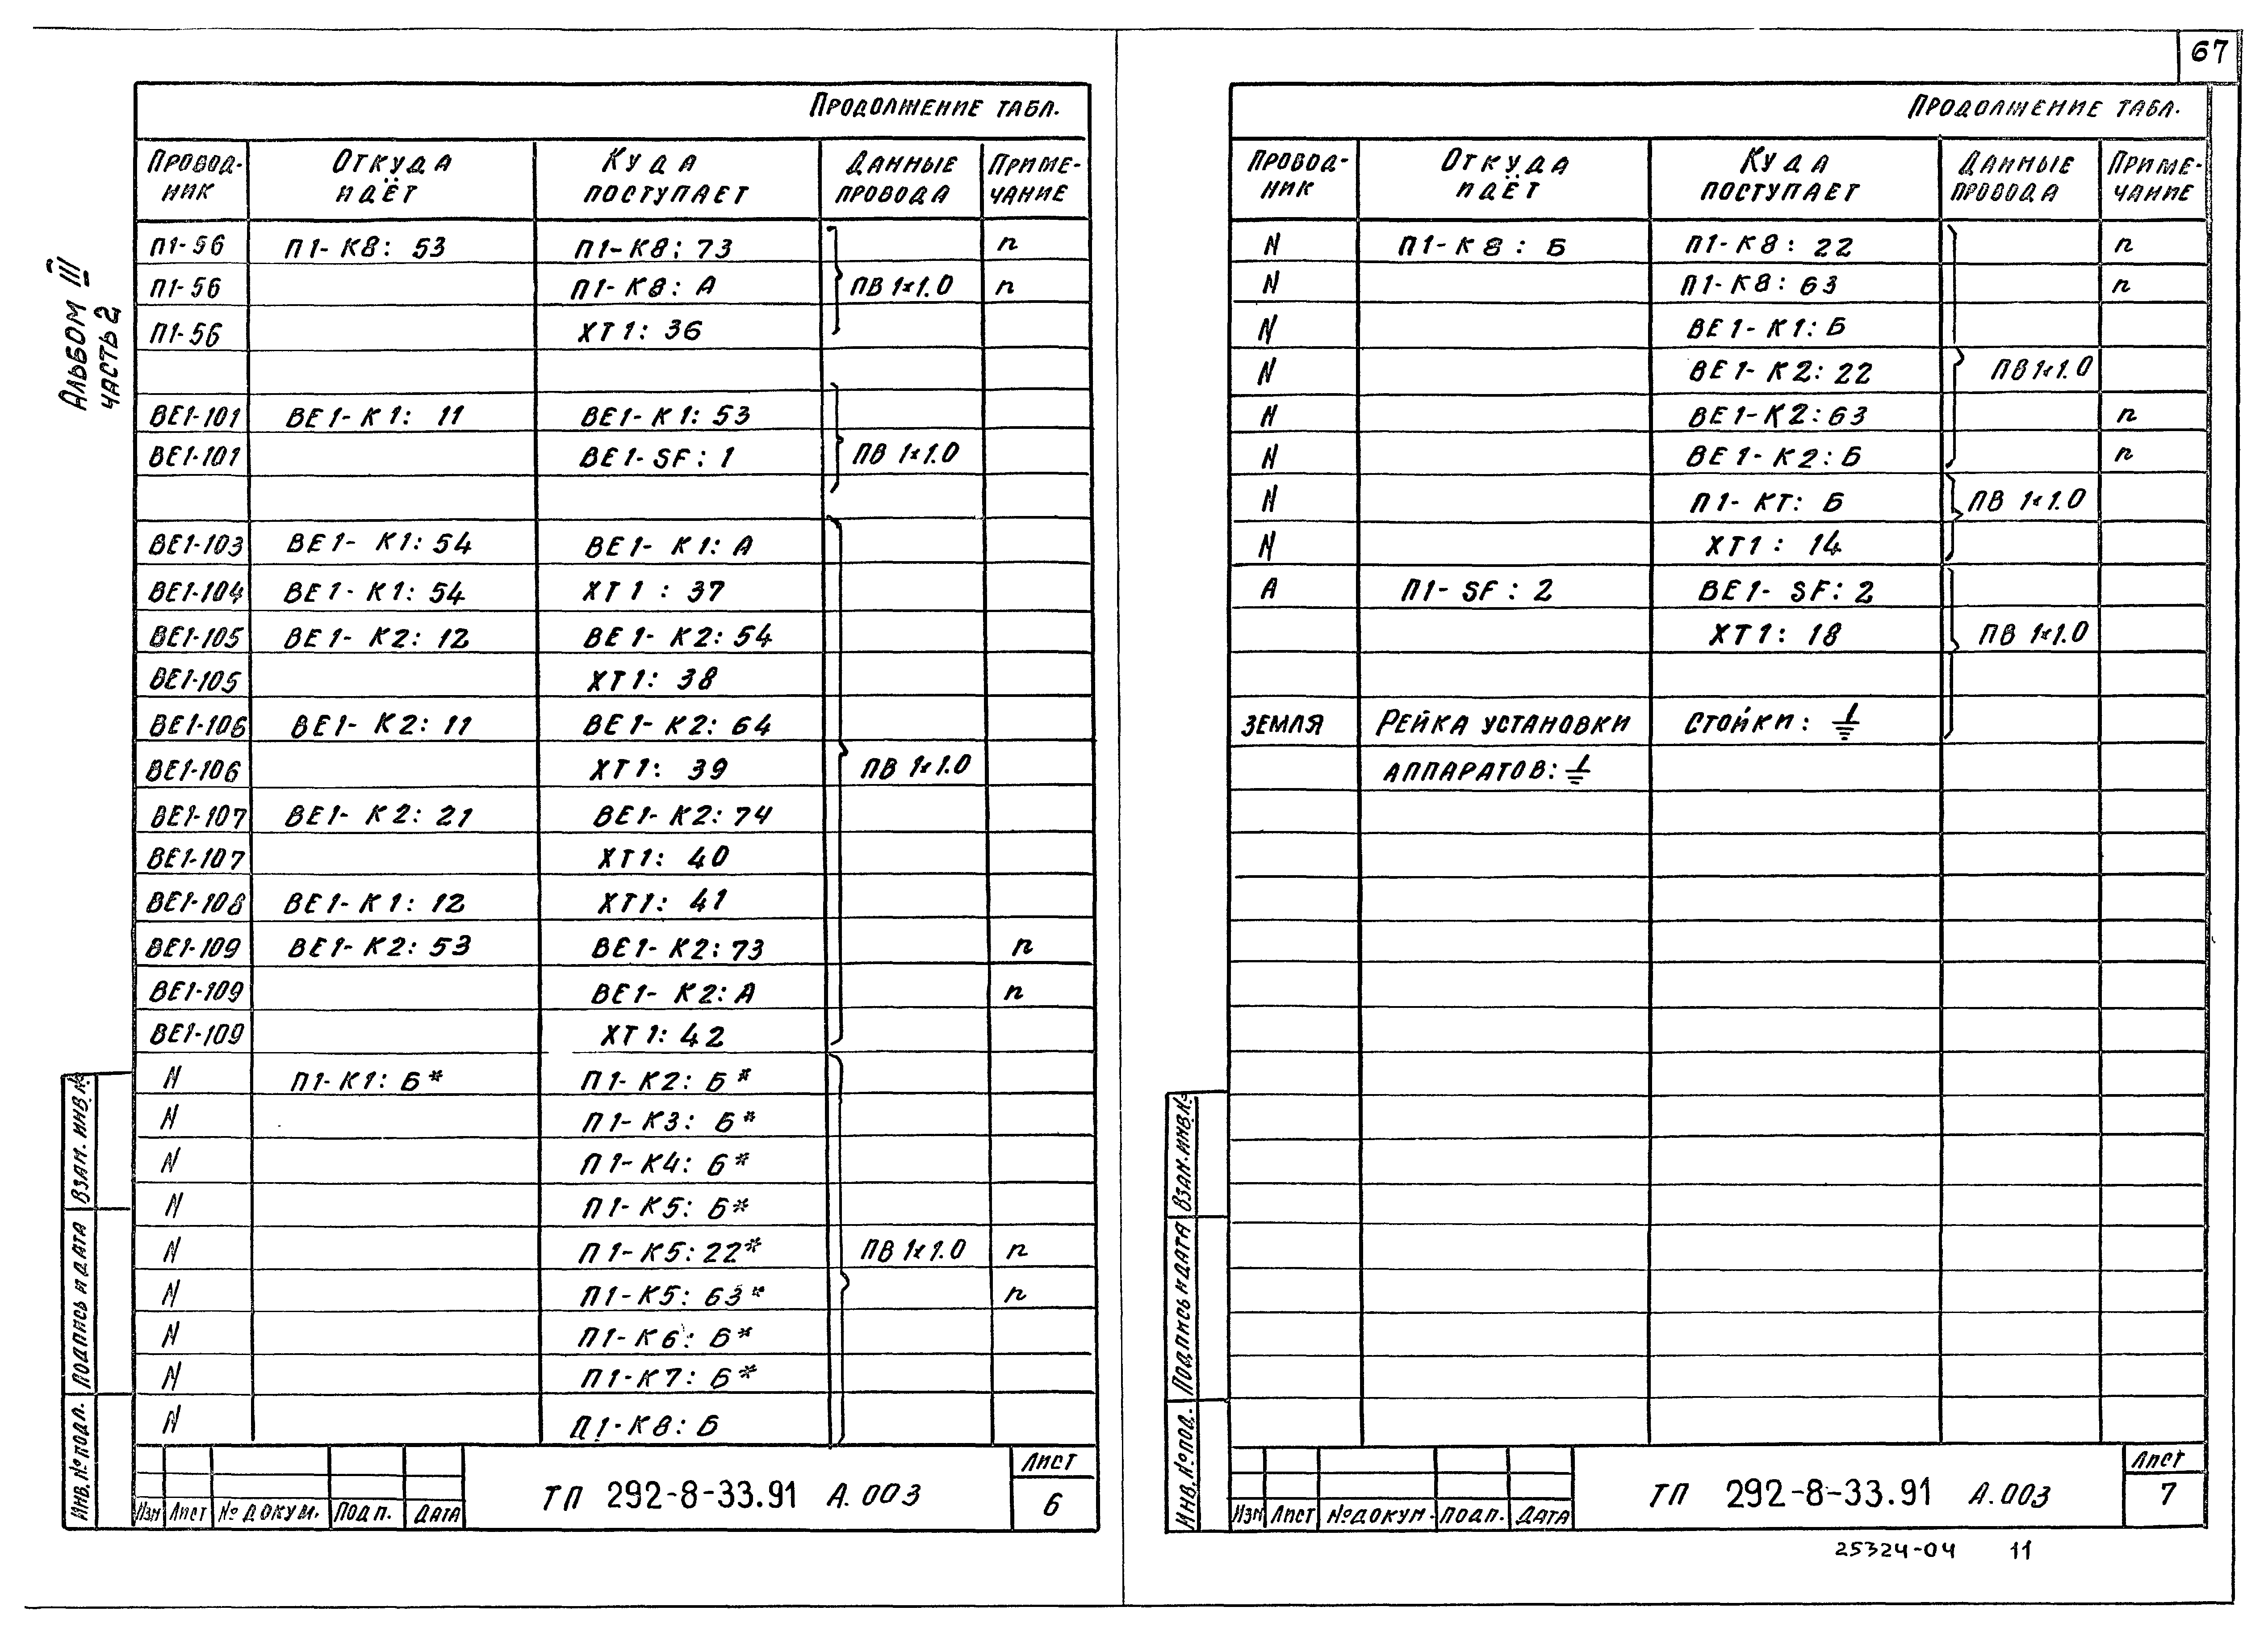 67
Альбом III
часть 2
Продолжение табл.
Провод- Откуда Куда Данные Приме-
ник идёт поступает провода чание
П1-56 П1-К8: 53 П1-К8: 73 п
П1-56 П1-К8: А ПВ 1×1.0 п
П1-56 ХТ1: 36
ВЕ1-101 ВЕ1-К1: 11 ВЕ1-К1: 53
ВЕ1-101 ВЕ1-SF: 1 ПВ 1×1.0
ВЕ1-103 ВЕ1-К1: 54 ВЕ1-К1: А
ВЕ1-104 ВЕ1-К1: 54 ХТ1: 37
ВЕ1-105 ВЕ1-К2: 12 ВЕ1-К2: 54
ВЕ1-105 ХТ1: 38
ВЕ1-106 ВЕ1-К2: 11 ВЕ1-К2: 64
ВЕ1-106 ХТ1: 39 ПВ 1×1.0
ВЕ1-107 ВЕ1-К2: 21 ВЕ1-К2: 74
ВЕ1-107 ХТ1: 40
ВЕ1-108 ВЕ1-К1: 12 ХТ1: 41
ВЕ1-109 ВЕ1-К2: 53 ВЕ1-К2: 73 п
ВЕ1-109 ВЕ1-К2: А п
ВЕ1-109 ХТ1: 42
N П1-К1: Б* П1-К2: Б*
N П1-К3: Б*
N П1-К4: Б*
N П1-К5: Б*
N П1-К5: 22* ПВ 1×1.0 п
N П1-К5: 63* п
N П1-К6: Б*
N П1-К7: Б*
N П1-К8: Б
Взам. инв. №
Подпись и дата
Инв. № подл.
Изм Лист № докум. Подп. Дата
ТП 292-8-33.91 А.003
Лист
6
Продолжение табл.
Провод- Откуда Куда Данные Приме-
ник идёт поступает провода чание
N П1-К8: Б П1-К8: 22 п
N П1-К8: 63 п
N ВЕ1-К1: Б
N ВЕ1-К2: 22 ПВ 1×1.0
N ВЕ1-К2: 63 п
N ВЕ1-К2: Б п
N П1-КТ: Б ПВ 1×1.0
N ХТ1: 14
А П1-SF: 2 ВЕ1-SF: 2
ХТ1: 18 ПВ 1×1.0
Земля Рейка установки Стойки: ⏚
аппаратов: ⏚
Взам. инв. №
Подпись и дата
Инв. № под.
Изм Лист № докум. Подп. Дата
ТП 292-8-33.91 А.003
Лист
7
25324-04 11